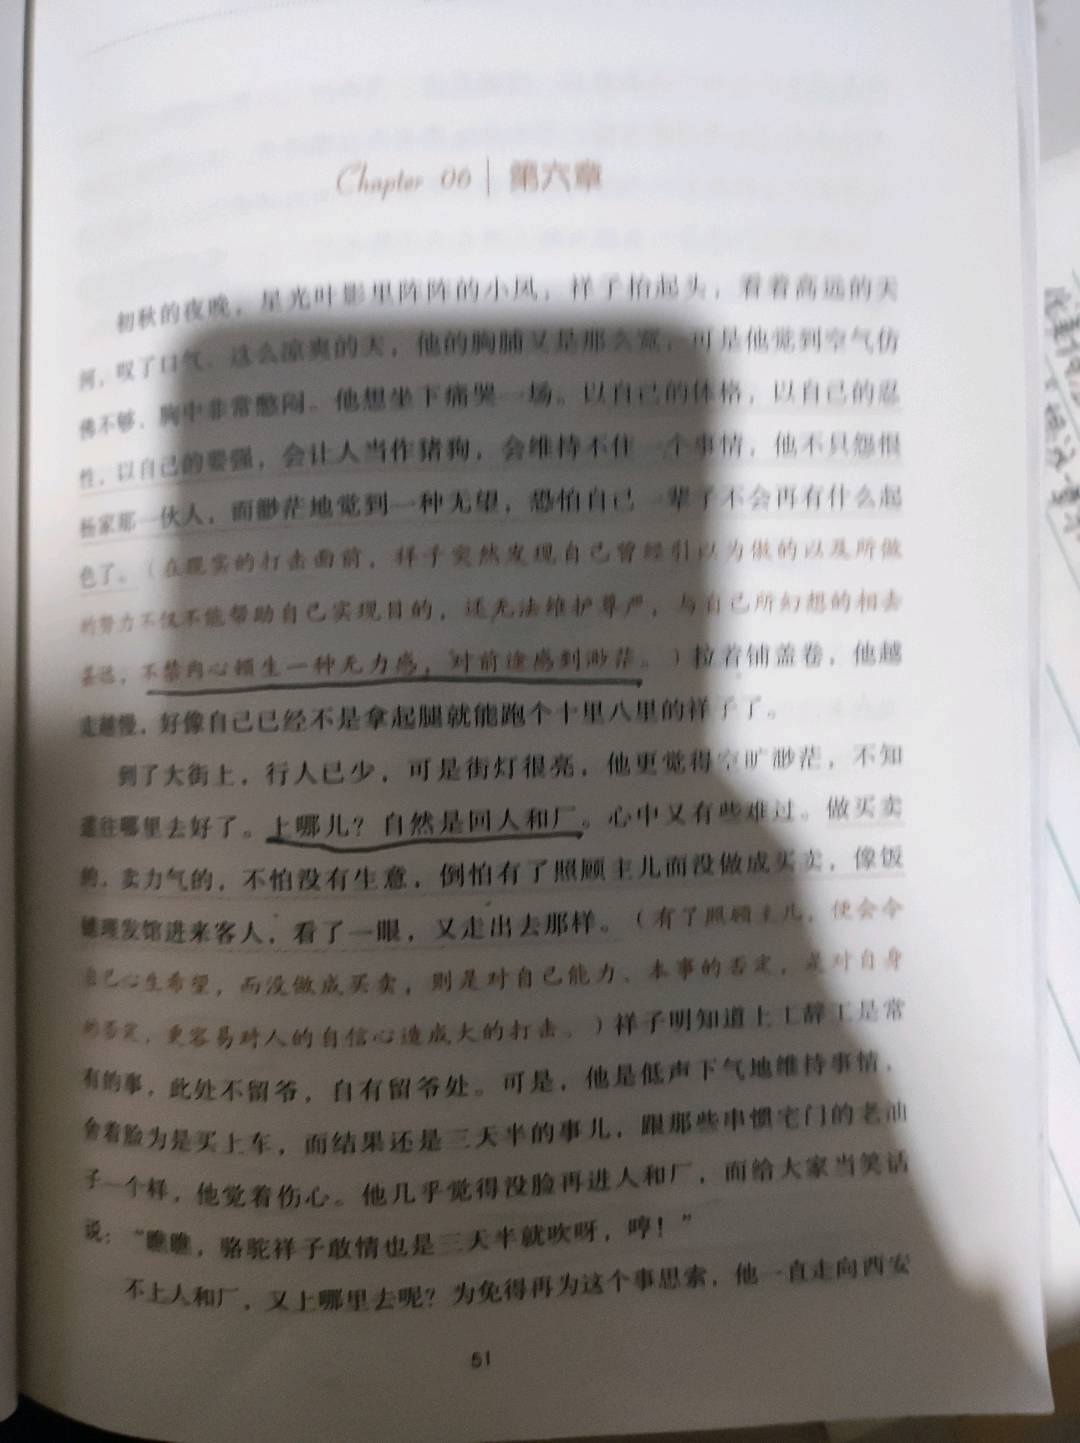 Chapter 06 | 第六章
初秋的夜晚，星光叶影里阵阵的小风，祥子抬起头，看着高远的天
河，叹了口气。这么凉爽的天，他的胸脯又是那么宽，可是他觉到空气仿
佛不够，胸中非常憋闷。他想坐下痛哭一场。以自己的体格，以自己的忍
性，以自己的要强，会让人当作猪狗，会维持不住一个事情，他不只怨恨
杨家那一伙人，而渺茫地觉到一种无望，恐怕自己一辈子不会再有什么起
色了。（在现实的打击面前，祥子突然发现自己曾经引以为傲的以及所做
的努力不仅不能帮助自己实现目的，还无法维护尊严，与自己所幻想的相去
甚远，不禁内心顿生一种无力感，对前途感到渺茫。）拉着铺盖卷，他越
走越慢，好像自己已经不是拿起腿就能跑个十里八里的祥子了。
到了大街上，行人已少，可是街灯很亮，他更觉得空旷渺茫，不知
道往哪里去好了。上哪儿？自然是回人和厂。心中又有些难过。做买卖
的，卖力气的，不怕没有生意，倒怕有了照顾主儿而没做成买卖，像饭
铺理发馆进来客人，看了一眼，又走出去那样。（有了照顾主儿，便会令
自己心生希望，而没做成买卖，则是对自己能力、本事的否定，是对自身
的否定，更容易对人的自信心造成大的打击。）祥子明知道上工辞工是常
有的事，此处不留爷，自有留爷处。可是，他是低声下气地维持事情，
舍着脸为是买上车，而结果还是三天半的事儿，跟那些串惯宅门的老油
子一个样，他觉着伤心。他几乎觉得没脸再进人和厂，而给大家当笑话
说：“瞧瞧，骆驼祥子敢情也是三天半就吹呀，哼！”
不上人和厂，又上哪里去呢？为免得再为这个事思索，他一直走向西安
51